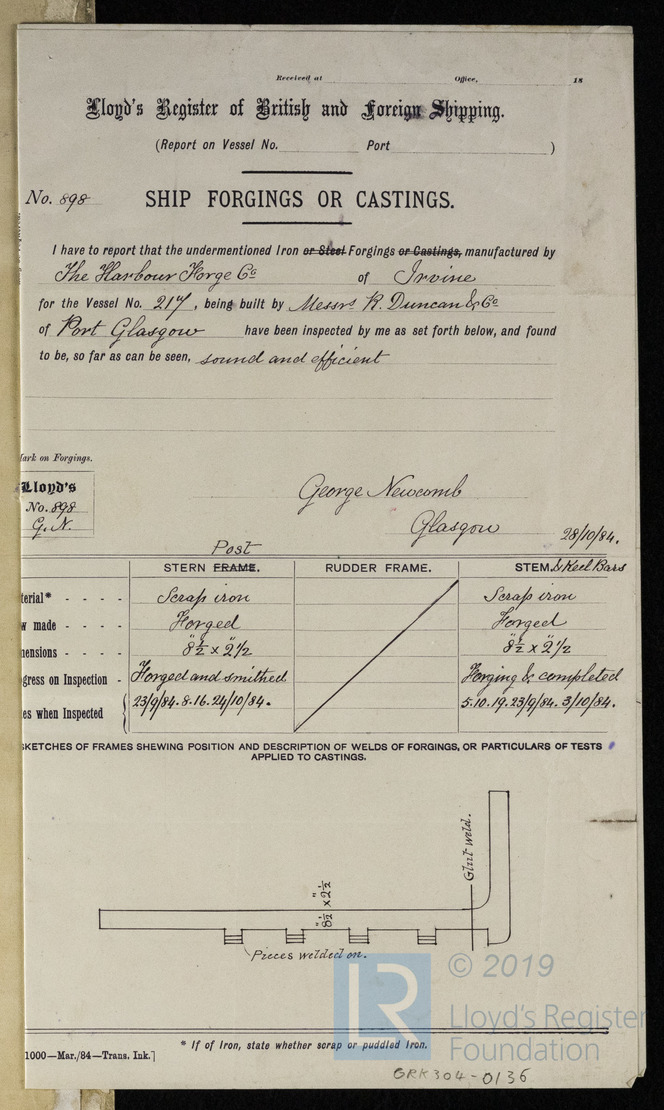 Received at Office, 18
Lloyd's Register of British and Foreign Shipping.
(Report on Vessel No. Port )
No. 898
SHIP FORGINGS OR CASTINGS.
I have to report that the undermentioned Iron or Steel Forgings or Castings, manufactured by
The Harbour Forge Co of Irvine
for the Vessel No. 217, being built by Messrs R. Duncan & Co
of Port Glasgow have been inspected by me as set forth below, and found
to be, so far as can be seen, sound and efficient
Mark on Forgings.
Lloyd's
No. 898
G. N.
George Newcomb
Glasgow 28/10/84.
Post
STERN FRAME. RUDDER FRAME. STEM. & Keel Bars
terial* - - - - Scrap iron Scrap iron
w made - - - - Forged Forged
mensions - - - - 8½" x 2½" 8½" x 2½"
gress on Inspection - Forged and smithed Forging & completed
es when Inspected 23/9/84. 8. 16. 24/10/84. 5. 10. 19. 23/9/84. 3/10/84.
SKETCHES OF FRAMES SHEWING POSITION AND DESCRIPTION OF WELDS OF FORGINGS, OR PARTICULARS OF TESTS
APPLIED TO CASTINGS.
Glut weld.
8½" x 2½"
Pieces welded on.
© 2019
LR
Lloyd's Register
Foundation
* If of Iron, state whether scrap or puddled Iron.
1000—Mar./84—Trans. Ink.]
GRK304-0136